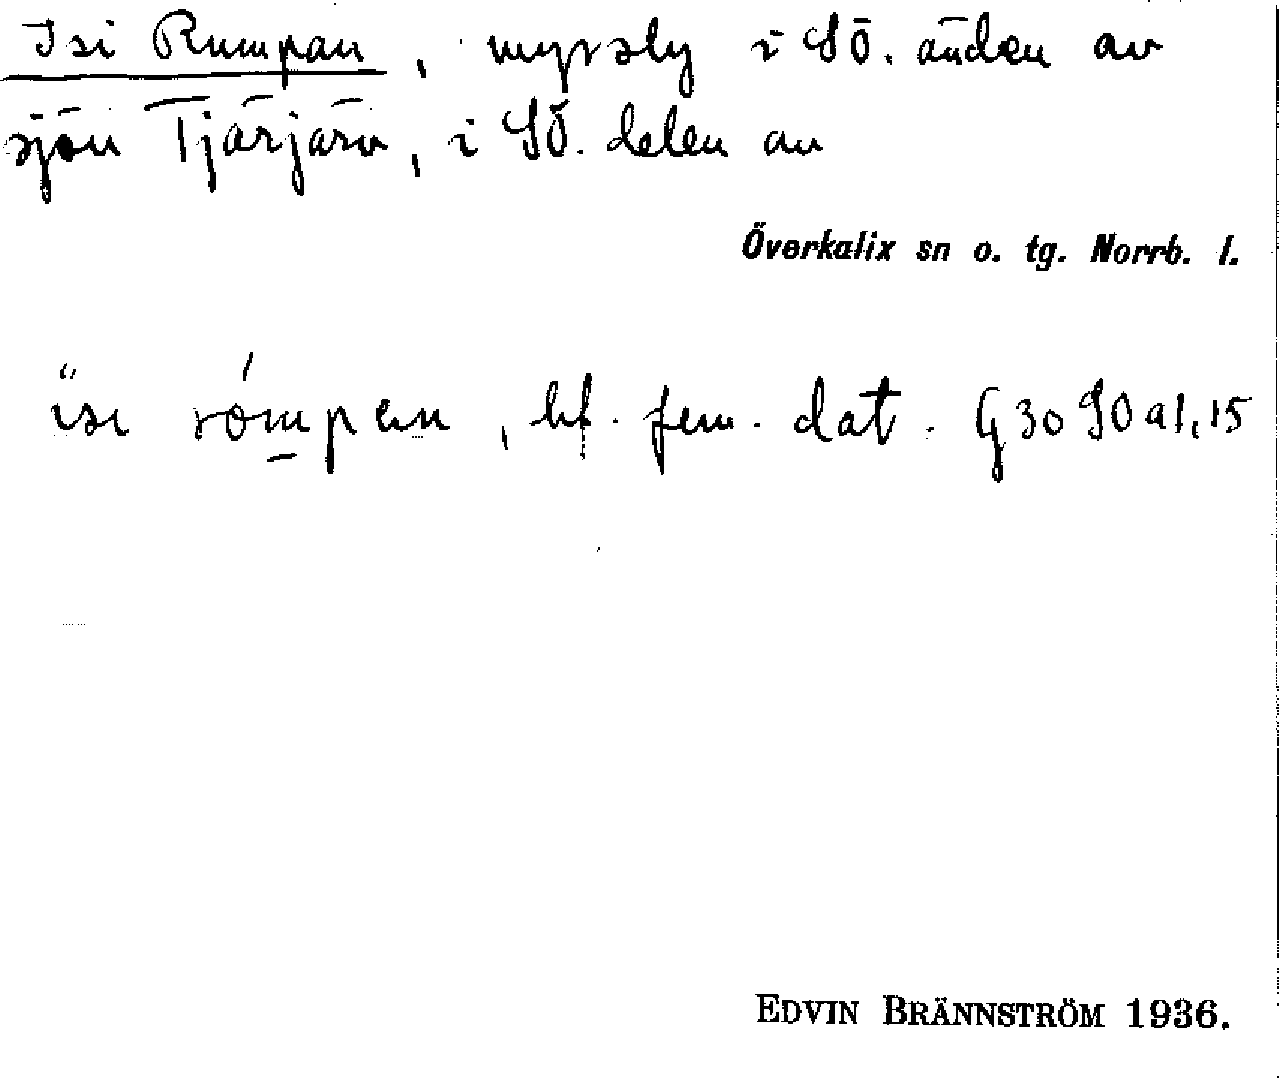 Isi Rumpan, myrsly i SÖ. änden av
sjön Tjärjärv, i SÖ. delen av
Överkalix sn o. tg. Norrb. l.
ɩsɩ rómpen, bf. fem. dat. G 30 90 a1, 15
EDVIN BRÄNNSTRÖM 1936.